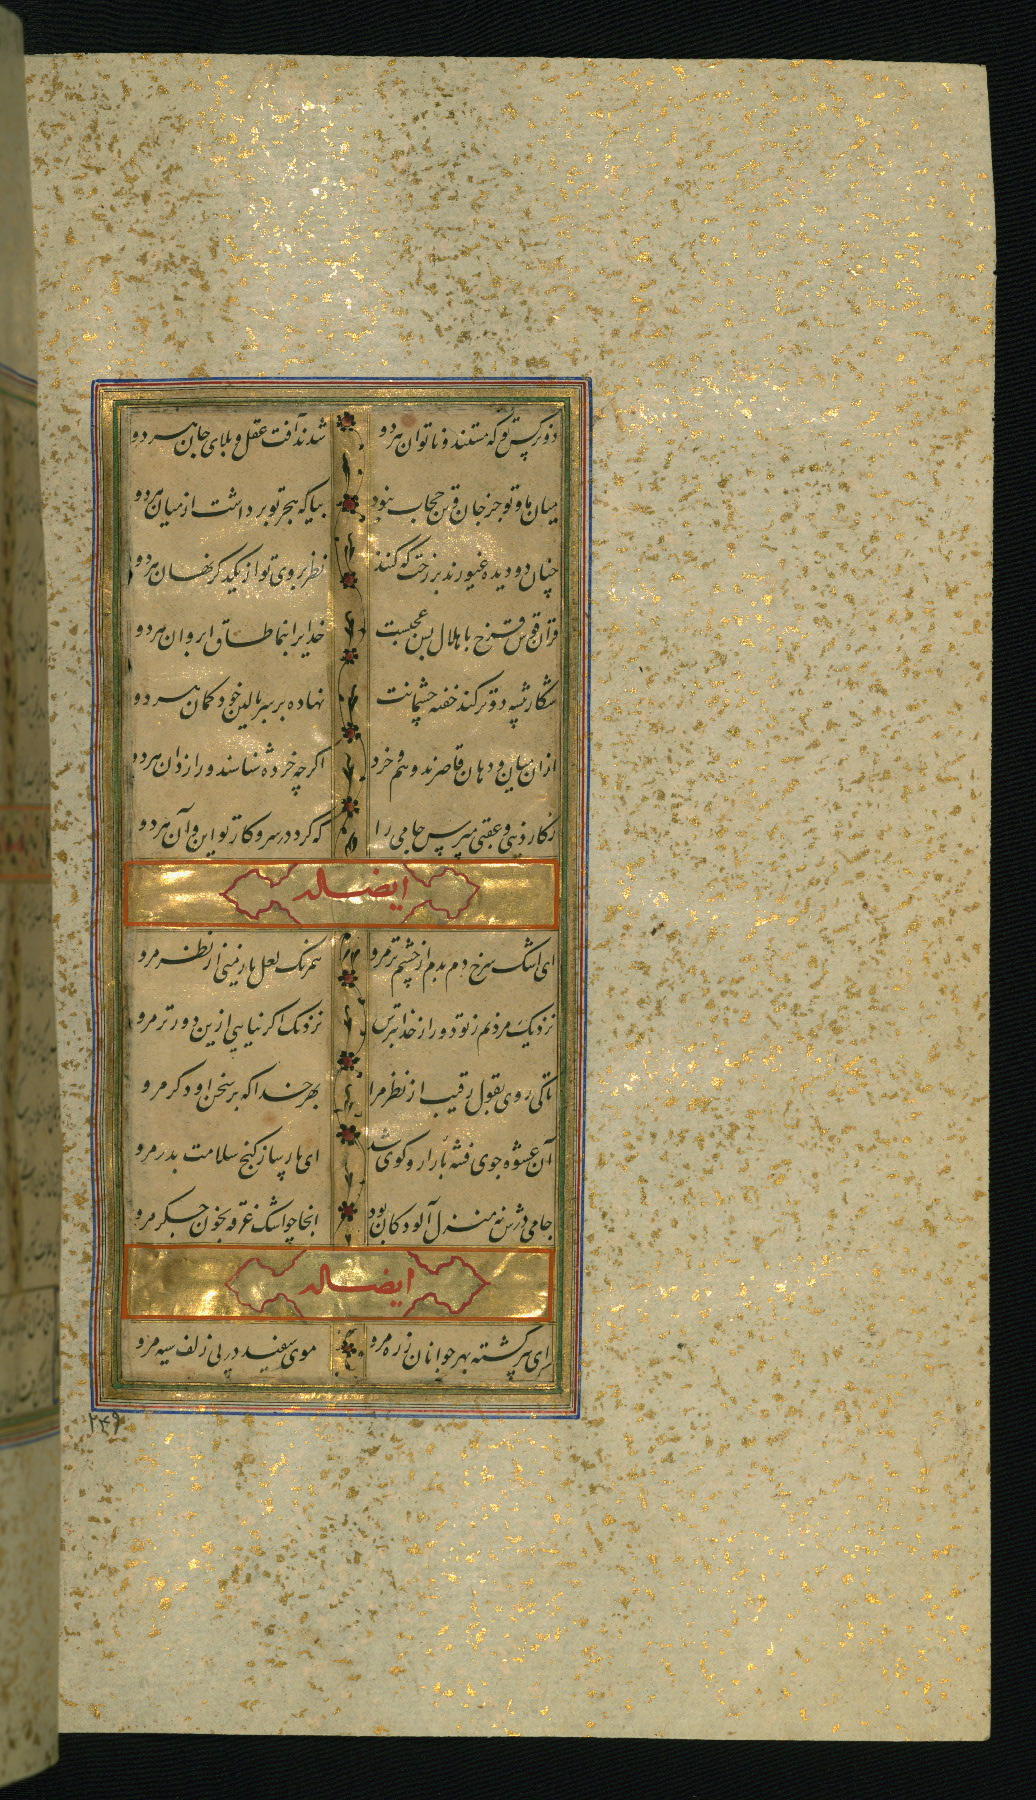 دو نرگس تو که مستند و ناتوان هر دو شدند آفت عقل و بلای جان هر دو
میان ما و تو جز جان و تن حجاب نبود بیا که هجر تو برداشت از میان هر دو
چنان دو دیده غیورند بر رخت که کنند نظر بروی تو از یکدگر نهان هر دو
قران قوس قزح با هلال بس عجبست خدایرا بنما طاق ابروان هر دو
شکار پیشه دو ترکند خفته چشمانت نهاده بر سر بالین خود کمان هر دو
ازان میان و دهان قاصرند وهم و خرد اکرچه خرده شناسند و رازدان هر دو
زکار دنیی و عقبی مپرس جامی را که کرد در سر و کار تو این و آن هر دو
ایضا له
ای اشک سرخ دم بدم از چشم تر مرو همرنک لعل یار منی از نظر مرو
نزدیک مردنم ز تو دور از خدا بترس نزدیک اکر نیایی ازین دورتر مرو
تا کی روی بقول رقیب از نظر مرا بهر خدا که بر سخن او دکر مرو
آن عشوه جوی فتنه بازار و کوی شد ای پارسا ز کنج سلامت بدر مرو
جامی درش نه منزل آلودکان بود انجا چو اشک غرقه بخون جکر مرو
ایضا له
ای پیر کشته بهر جوانان ز ره مرو موی سفید در پی زلف سیه مرو
۲۴۹